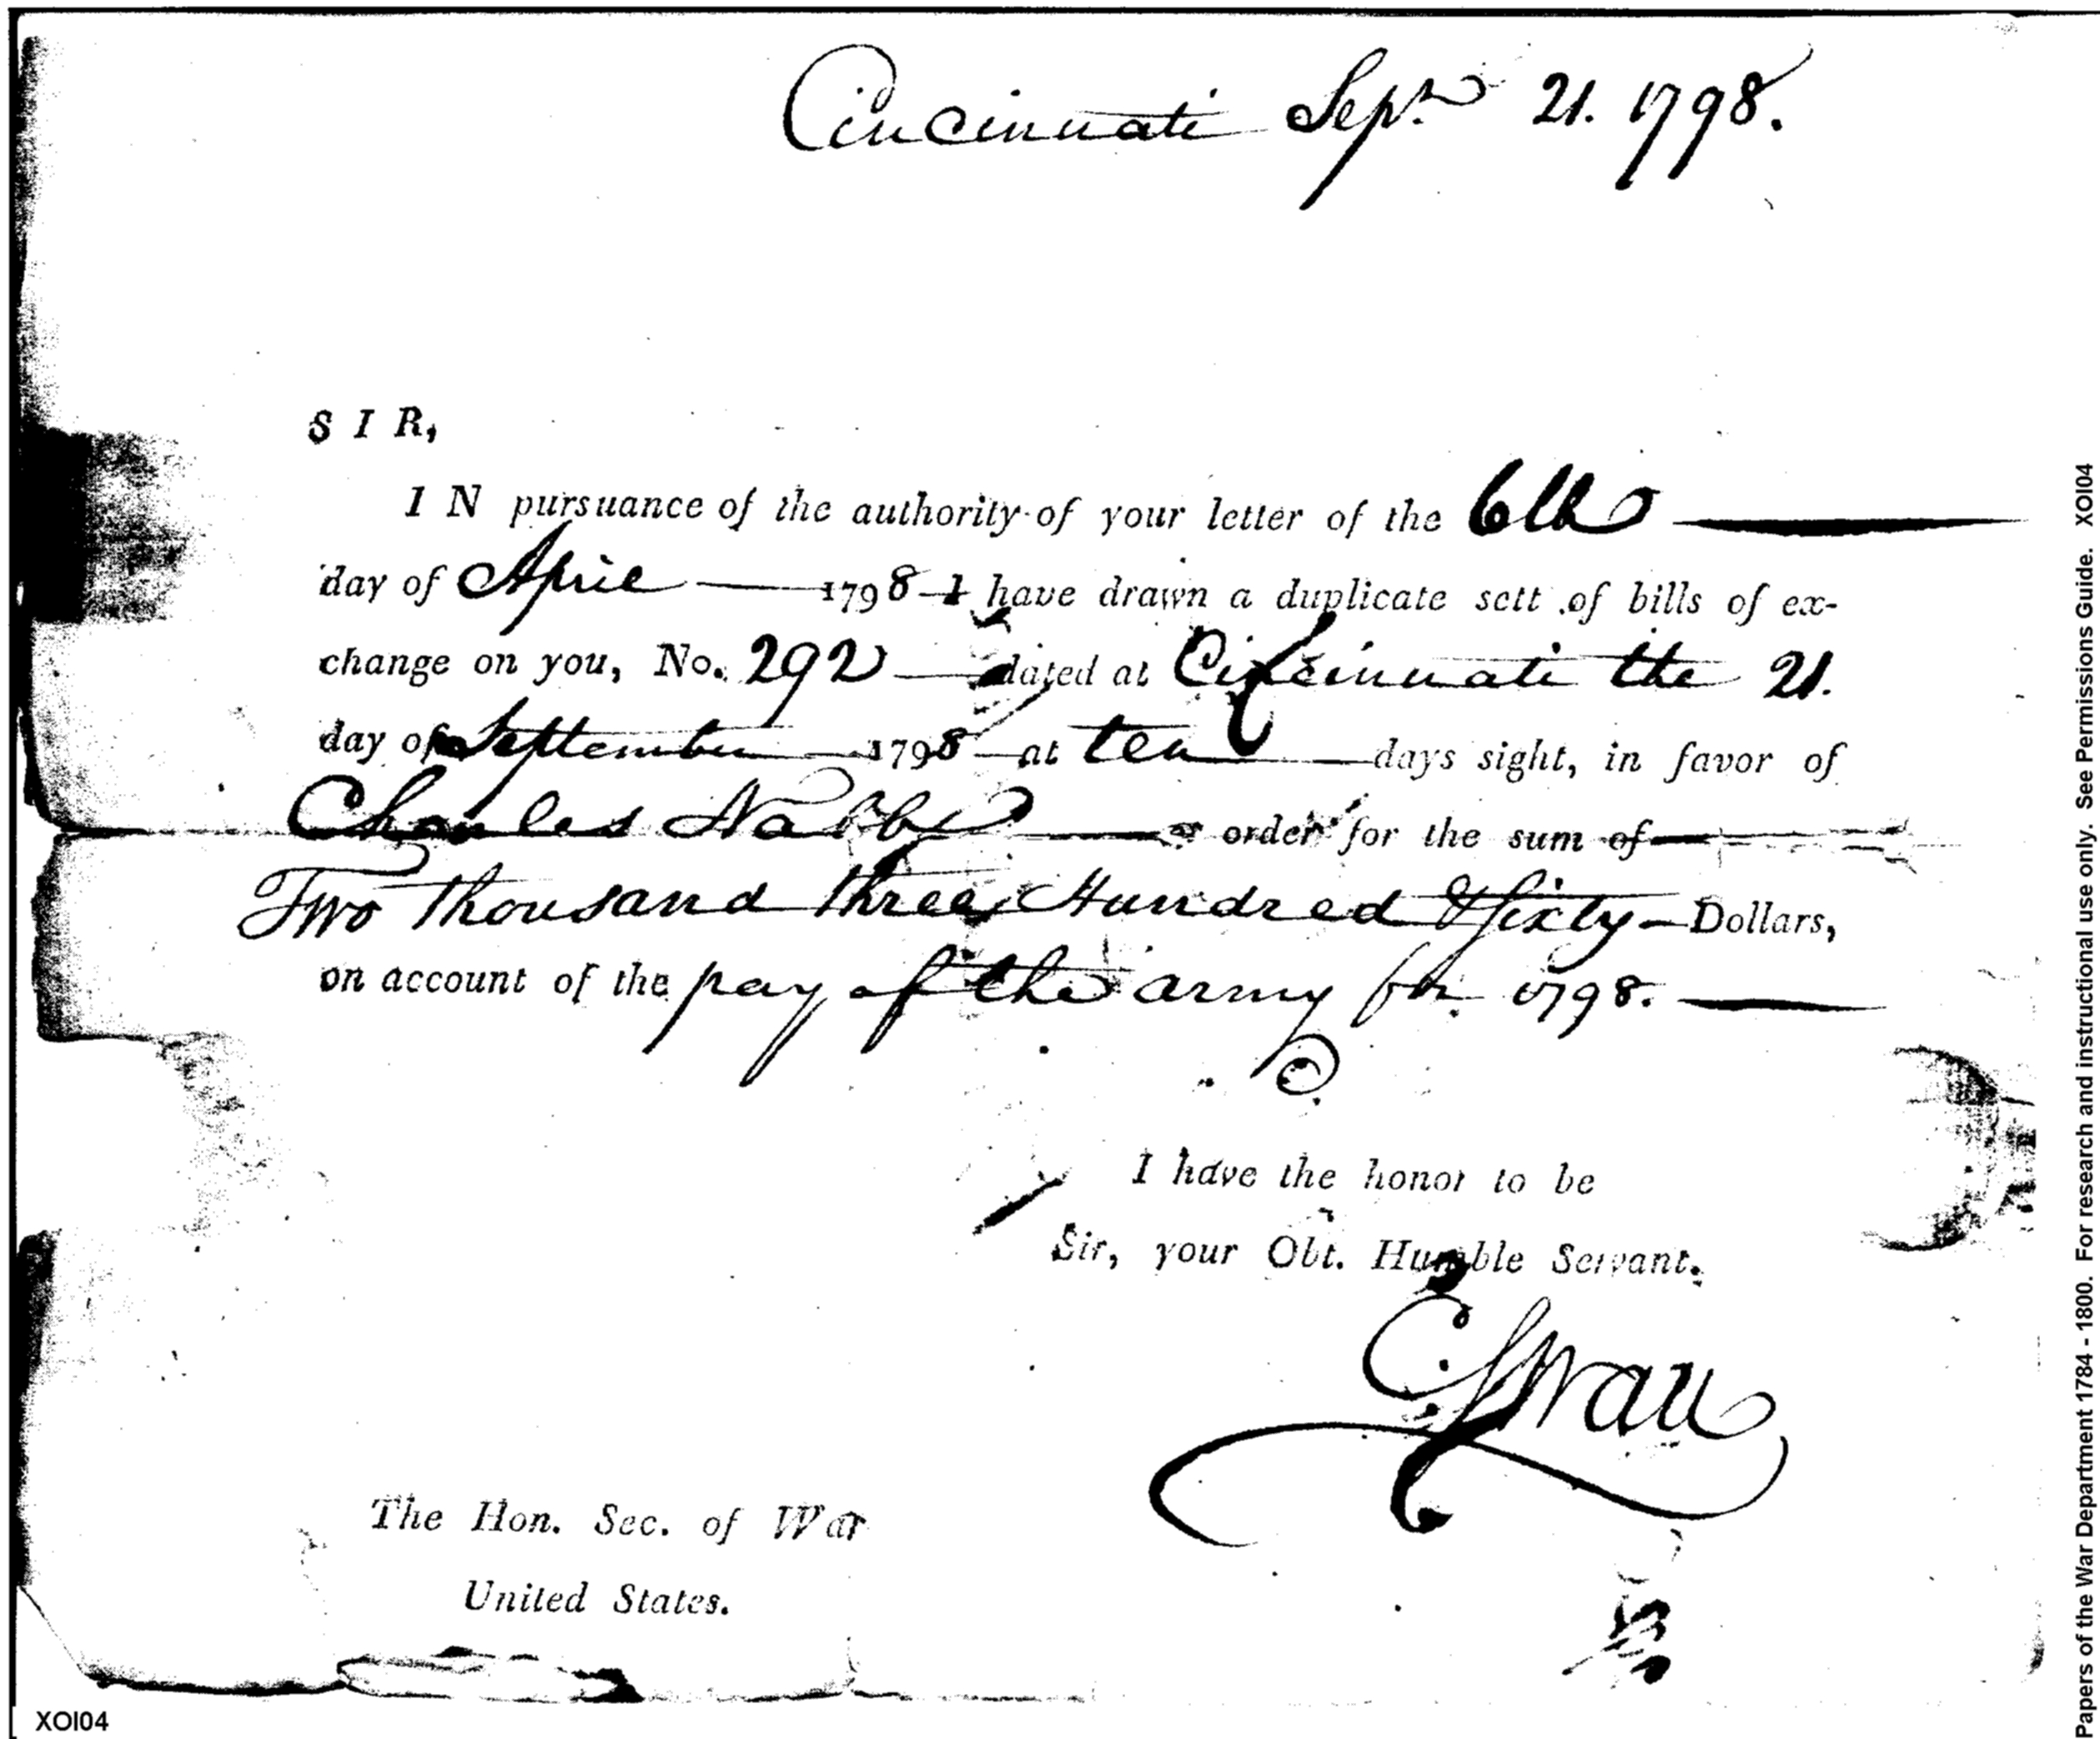 Cincinnati Sepr. 21. 1798.
S I R,
I N pursuance of the authority of your letter of the 6th
day of April 1798 I have drawn a duplicate sett of bills of ex-
change on you, No. 292 dated at Cincinnati the 21.
day of September 1798 at ten days sight, in favor of
Charles Nabb or order for the sum of
Two thousand three Hundred & sixty Dollars,
on account of the pay of the army for 1798.
I have the honor to be
Sir, your Obt. Humble Servant.
C Swan
The Hon. Sec. of War
United States.
XOI04
Papers of the War Department 1784 - 1800. For research and instructional use only. See Permissions Guide. XOI04